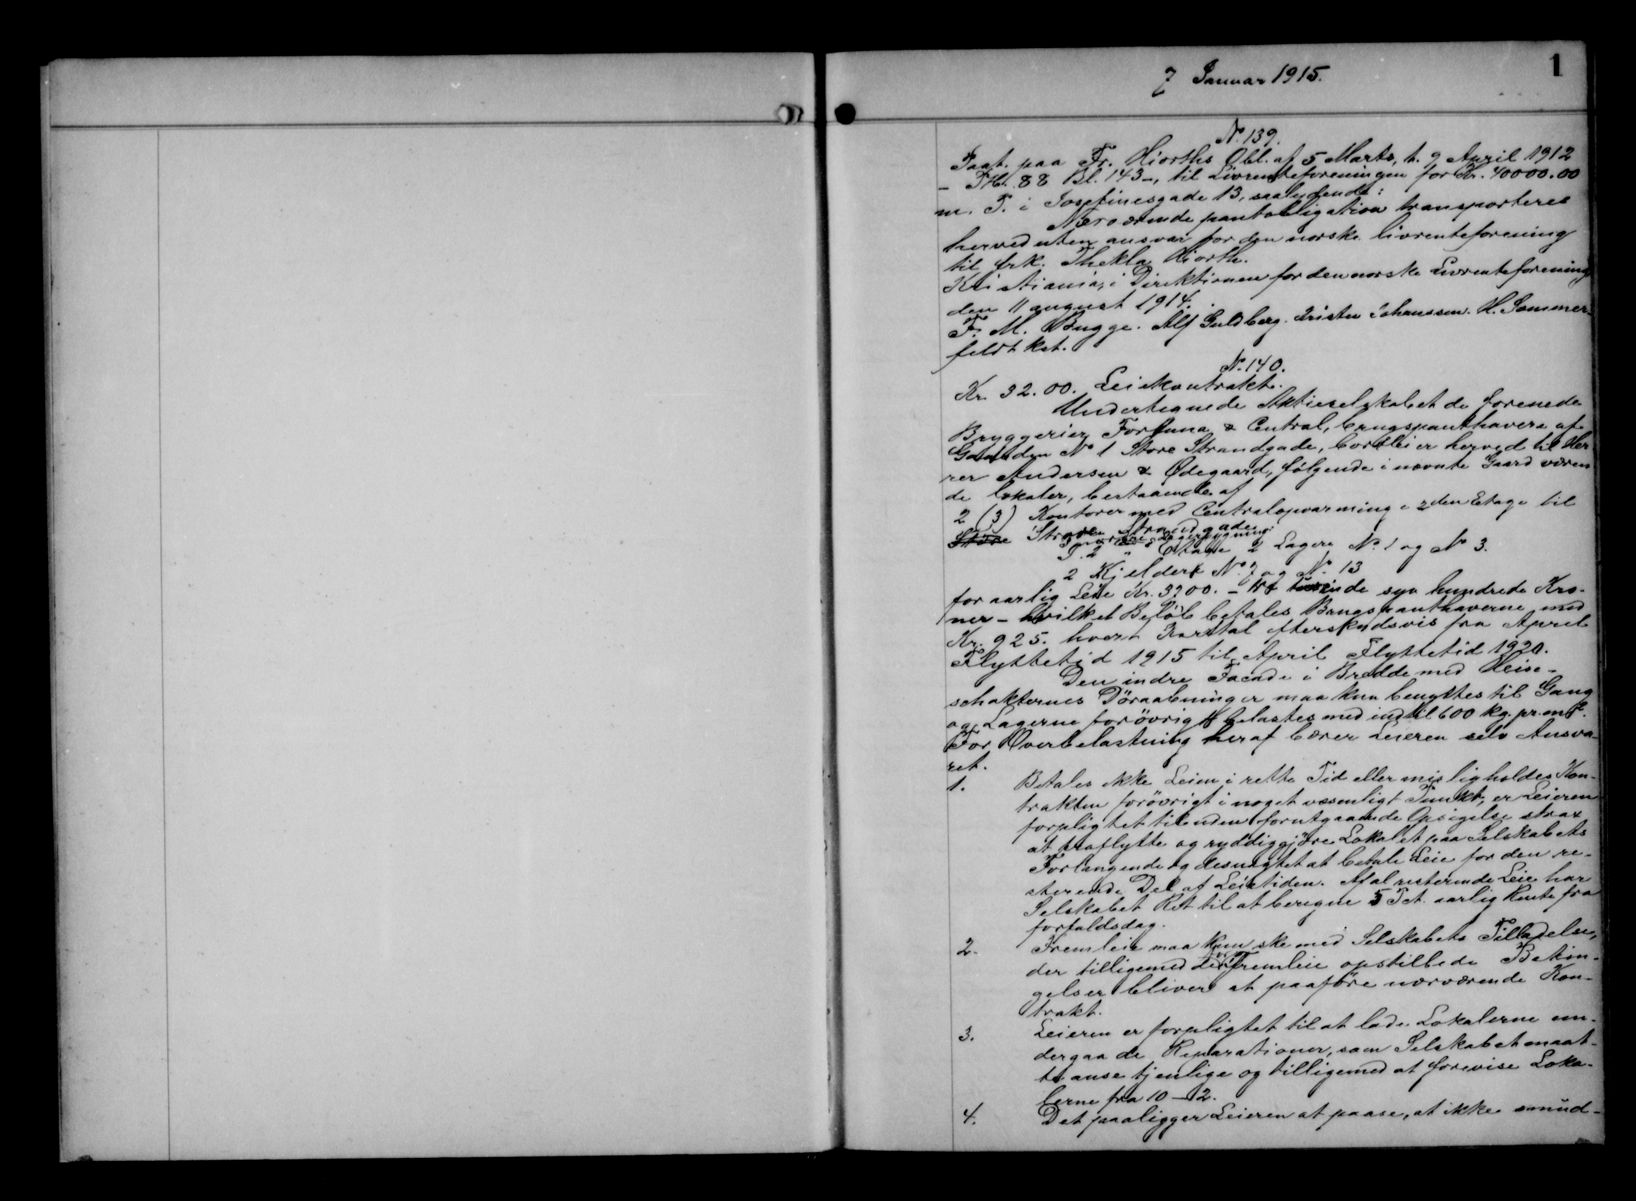 7 Januar 1915.
1
No 139.
Paat. paa Fr. Hiorths Obl. af 5 Marts, t. 9 April 1912
- PH. 88 Bl. 143 -, til Livrenteforeningen for Kr. 40000.00
m. P. i Josefinesgade 13, saalydende:
Nærværende pantobligation transporteres
herved uten ansvar for den norske livrenteforening
til frk. Thekla Hiorth.
Kristiania, i Direktionen for den norske Livrenteforening
den 11 august 1914.
F. M. Bugge. Alf Guldberg. Kristen Johanssen. H. Sommer-
feldt kst.
No 140.
Kr. 32.00. Leiekontrakt.
Undertegnede Aktieselskabet de forenede
Bryggerier Forsuna & Central, brugspanthavere af
Gaarden No 1 Store Strandgade, bortleier herved til Her
rer Andersen & Ødegaard, følgende i nævnte Gaard væren
de lokaler, bestaaende af
2 (3) Kontorer med Centralopvarming i 2den Etage til
Store Strandgade
I 2 " Etage 2 Lagere No 1 og No 3.
2 Kjeldere No 7 og No 13
for aarlig Leie Kr. 3700. - tre tusinde syv hundrede Kro-
ner - hvilket Beløb betales Brugspanthaverne med
Kr. 925. hvert Kvartal efterskudsvis fra April
Flyttetid 1915 til April Flyttetid 1920.
Den indre Facade i Bredde med Heise-
schakternes Døraabninger maa kun benyttes til Gang
og Lagerne forøvrigt belastes med indtil 600 kg. pr. m2.
For Overbelastning heraf bærer Leieren selv Ansva-
ret.
1. Betales ikke Leien i rette Tid eller misligholdes Kon-
trakten forøvrigt i noget væsenligt Punkt, er Leieren
forpligtet til uden forutgaaende Opsigelse strax
at fraflytte og ryddiggjøre Lokalet paa Selskabets
Forlangende og desuagtet at betale Leie for den re-
sterende Del af Leietiden. Af al resterende Leie har
Selskabet Ret til at beregne 5 Pct. aarlig Rente fra
forfaldsdag.
2. Fremleie maa kun ske med Selskabets Tilladelse,
der tilligemed de for Fremleie opstillede Betin-
gelser bliver at paaføre nærværende Kon-
trakt.
3. Leieren er forpligtet til at lade Lokalerne un-
dergaa de Reparationer, som Selskabet maat-
te anse tjenlige og tilligemed at forevise Loka-
lerne fra 10-12.
4. Det paaligger Leieren at paase, at ikke smud-